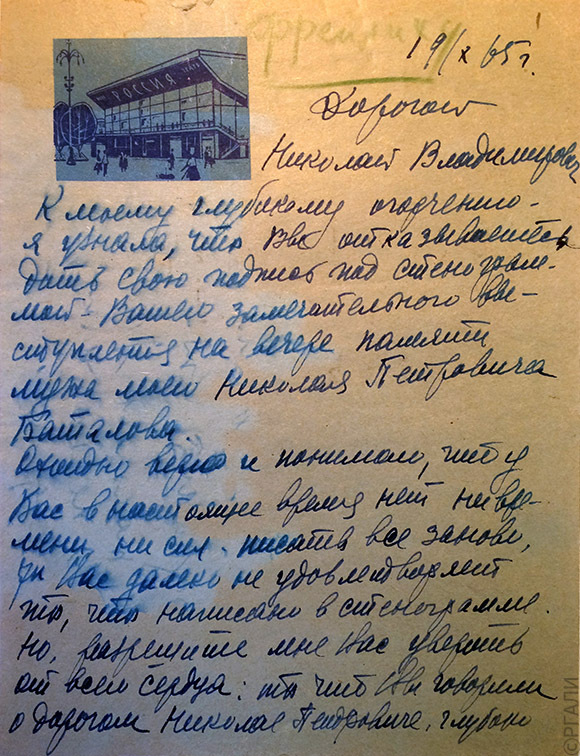 19/X 65 г.
РОССИЯ
Дорогой
Николай Владимирович
К моему глубокому огорчению-
я узнала, что Вы отказываетесь
дать свою подпись под стенограм-
мой Вашего замечательного вы-
ступления на вечере памяти
мужа моего Николая Петровича
Баталова.
и понимаю, что у
Вас в настоящее время нет ни вре-
мени, ни сил писать все заново,
Вас далеко не удовлетворяет
то, что написано в стенограмме.
Но, разрешите мне Вас уверить
от всего сердца: то что Вы говорили
о дорогом Николае Петровиче, глубоко
ОРГАЛИ